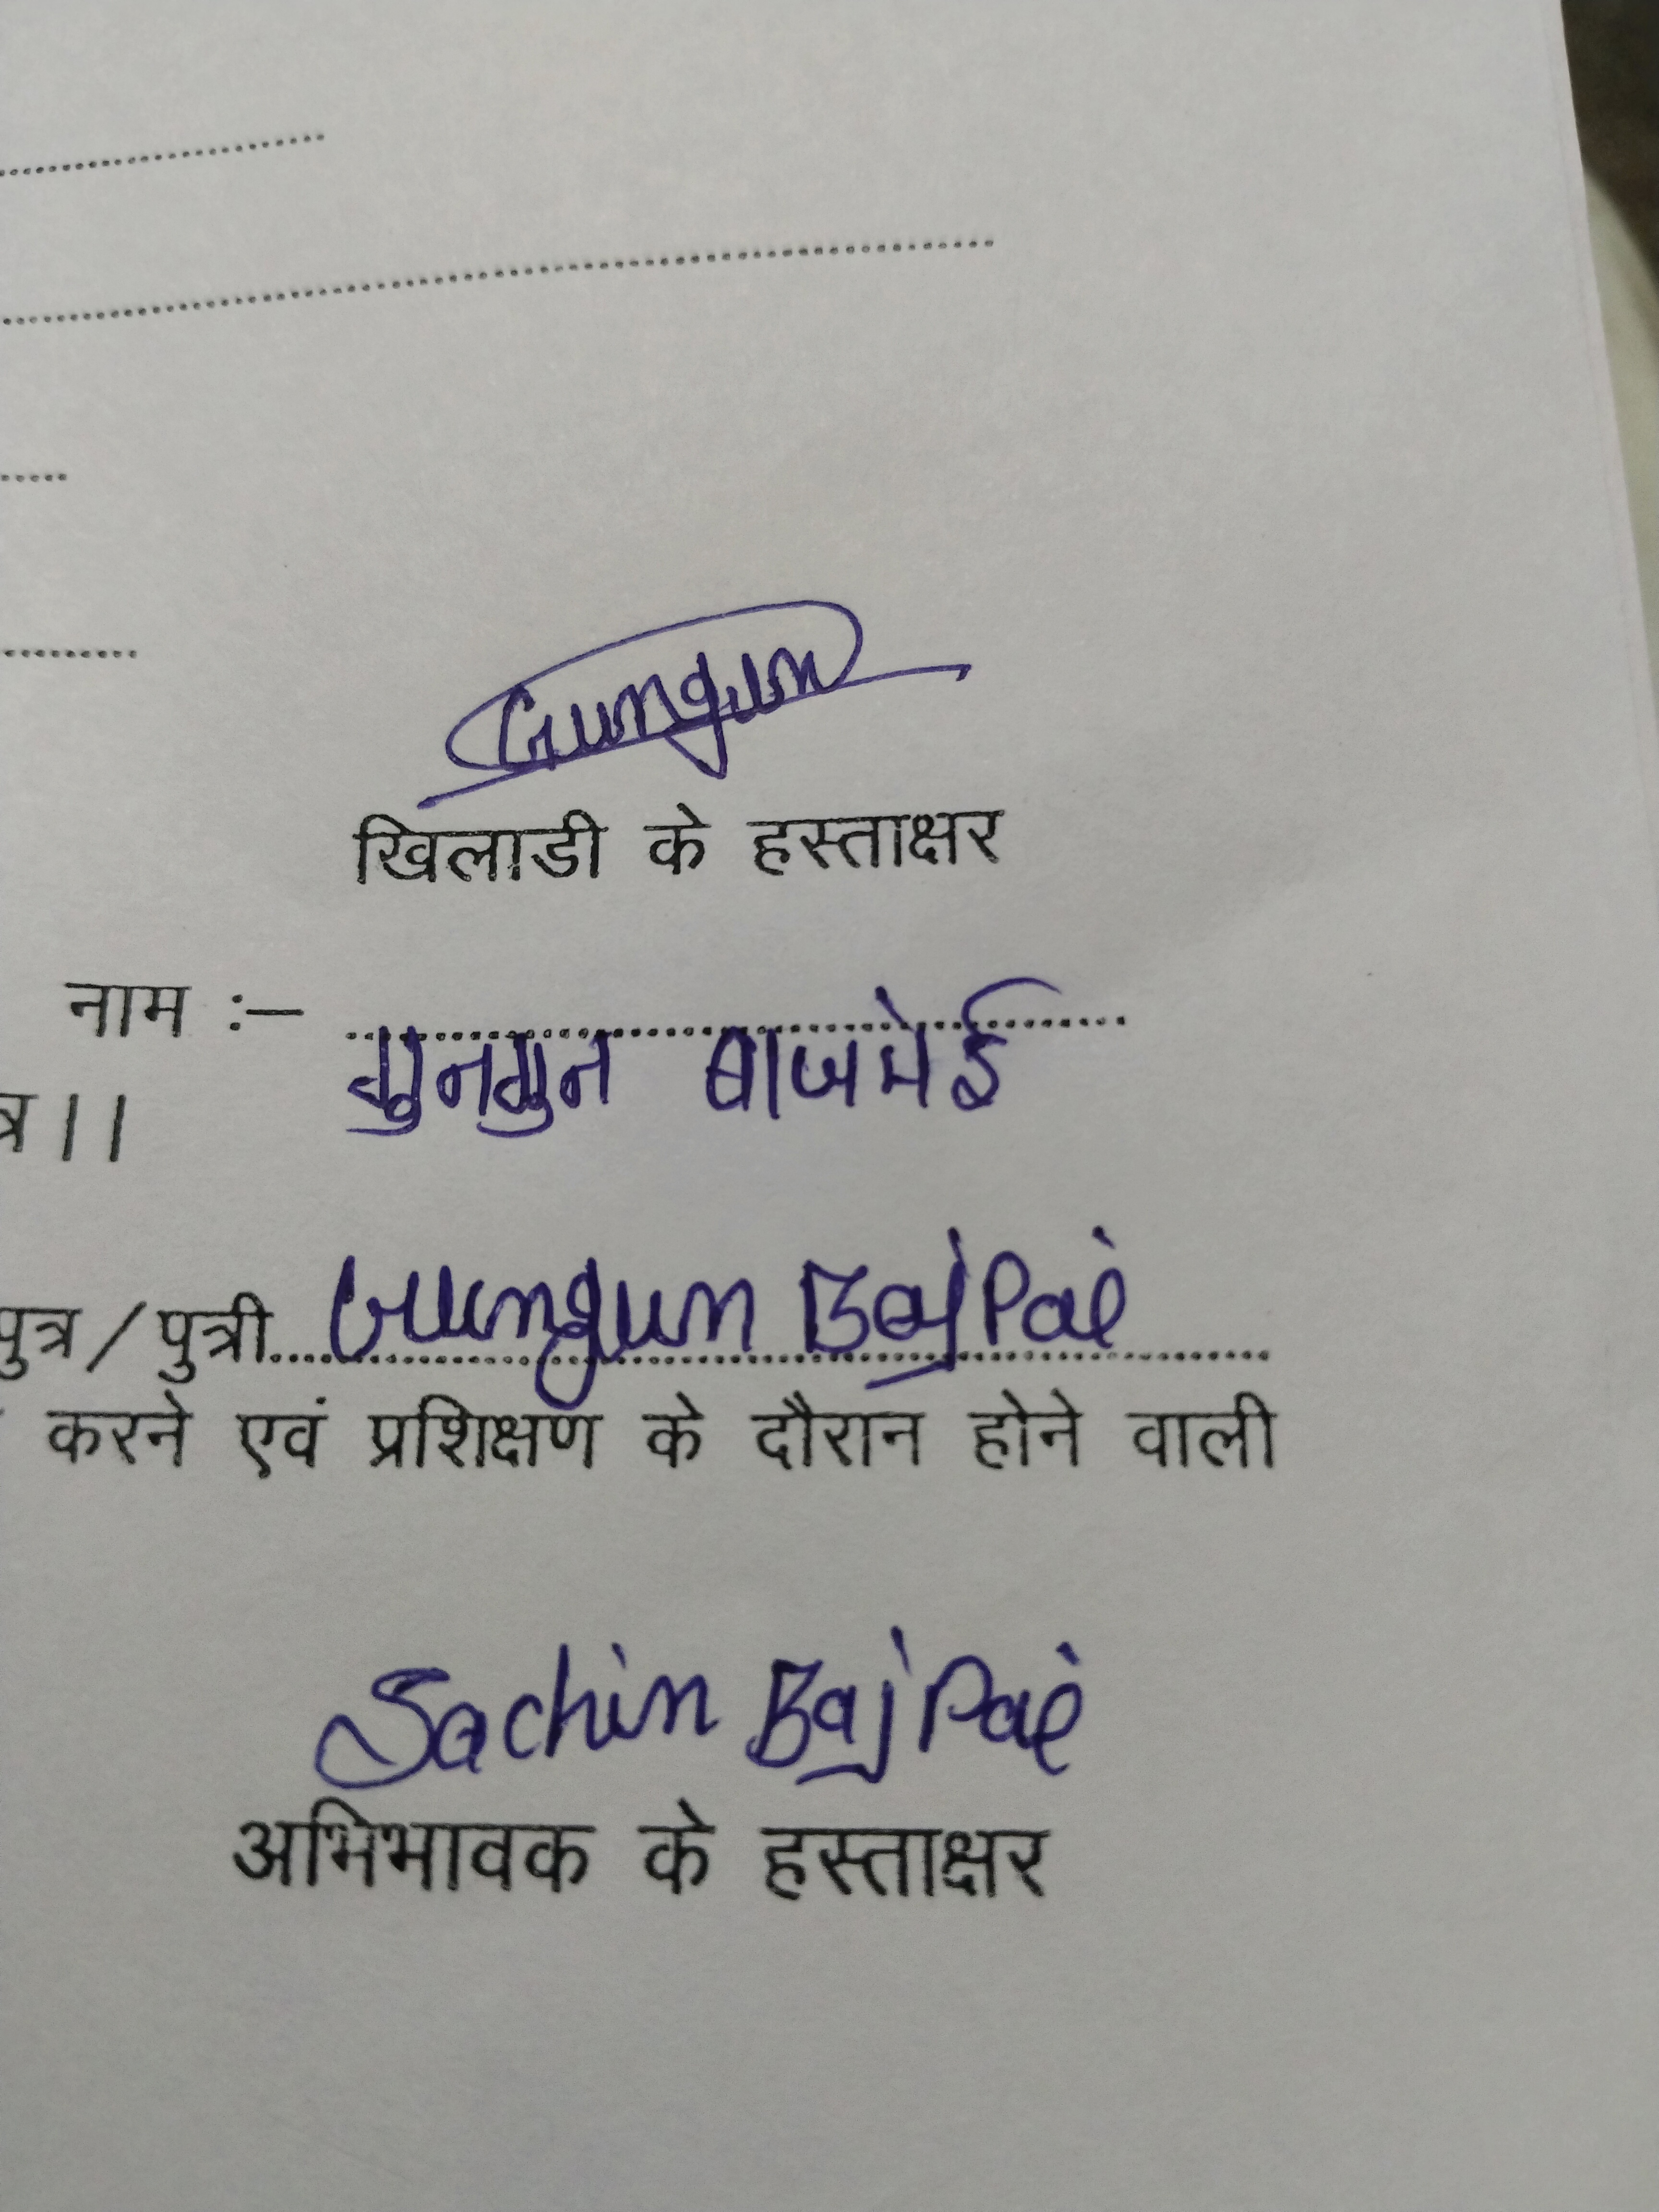 Gungun
खिलाडी के हस्ताक्षर
नाम :–
गुनगुन बाजपेई
त्र।।
पुत्र/पुत्री Gungun Bajpai
करने एवं प्रशिक्षण के दौरान होने वाली
Sachin Bajpai
अभिभावक के हस्ताक्षर